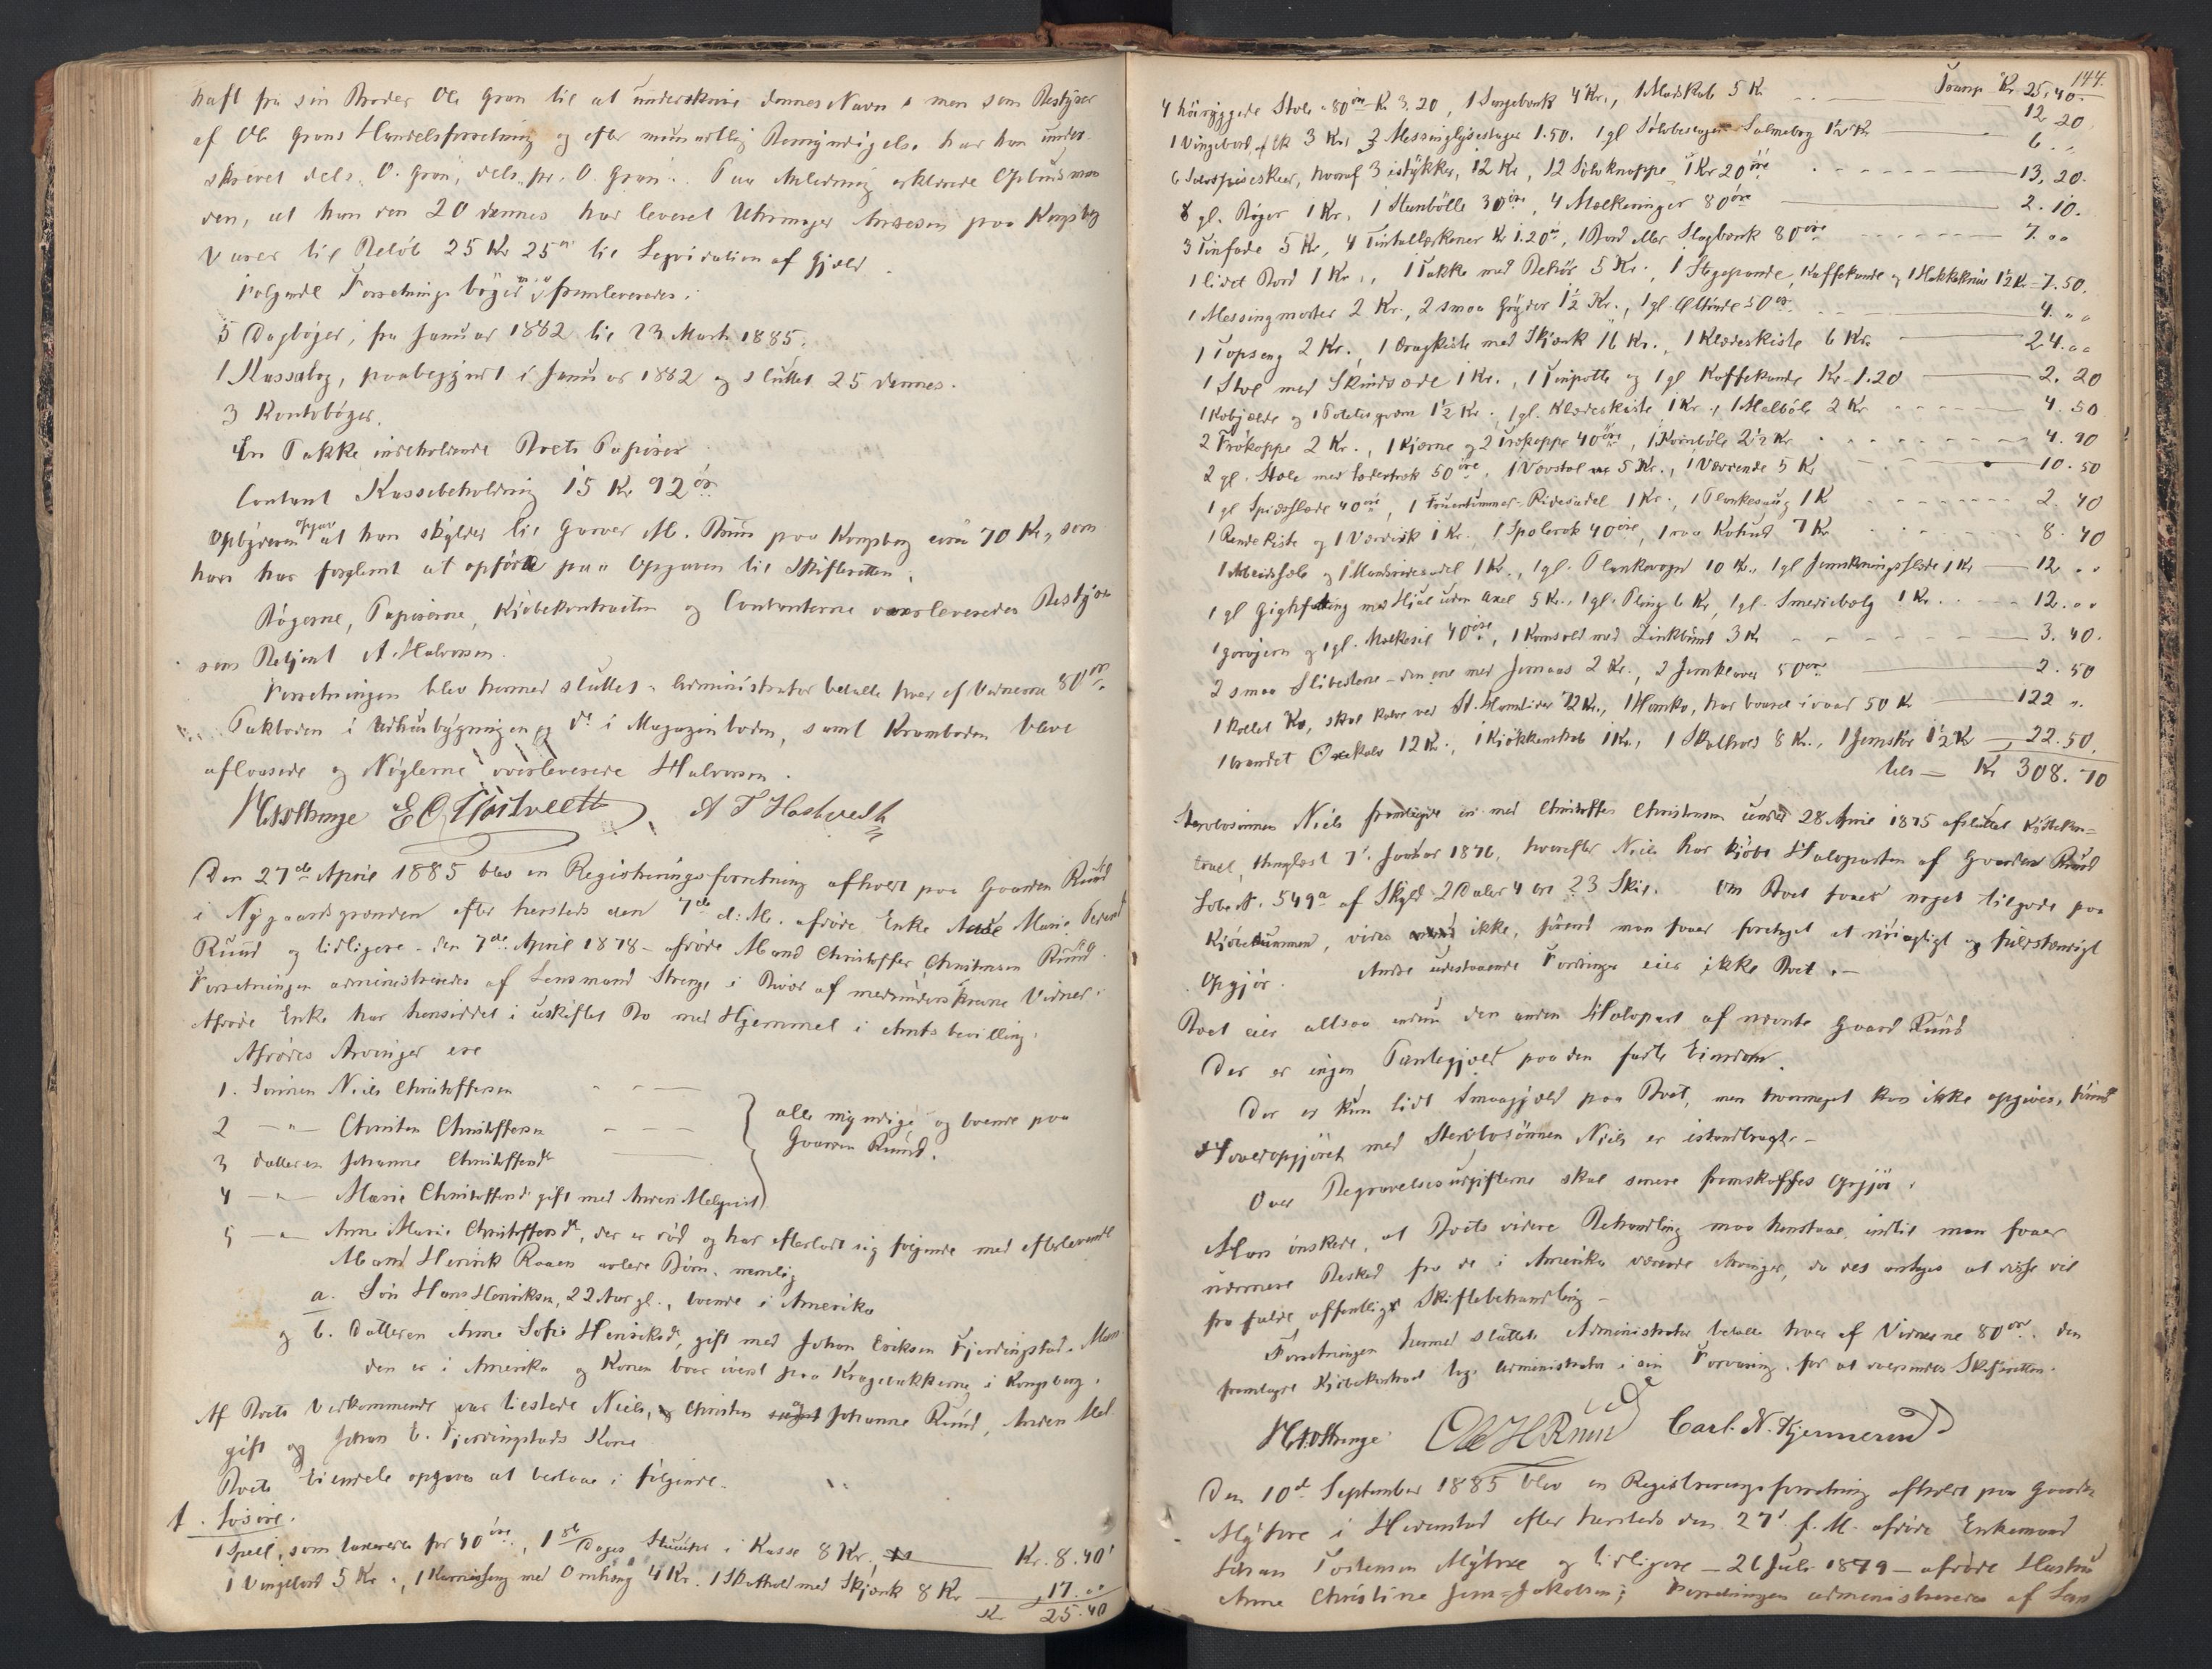 haft fra sin Broder Ole Grøn til at underskrive dennes Navn, men som Bestyrer
af Ole Grøns Handelsforretning og efter mundtlig Bemyndigelse har han under-
skrevet dels „O. Grøn“, dels „pr. O. Grøn“. Paa Anledning erklærede Opbudsman-
den, at han den 20 dennes har leveret Uhrmager paa Kongsberg
Varer til Beløb 25 Kr 25 ør til Liqvidation af Gjæld.
Følgende Forretnings bøger fremleveredes:
5 Dagbøger, fra Januar 1882 til 23 Marts 1885.
1 Kassabog, paabegyndt i Januar 1882 og sluttet 25 dennes.
3 Kontobøger.
En Pakke indeholdende Boets Papirer
Contant Kassebeholdning 15 Kr 92 ør
Opbyderen opgav at han skylder til Garver M. Bruun paa Kongsberg circa 70 Kr, som
han har forglemt at opføre paa Opgaven til Skifteretten.
Bøgerne, Papirerne, Kjøbekontracten og Contanterne overleveredes Besty-
sens Betjent A. Halvorsen.
Forretningen blev hermed sluttet. Administrator betalte hver af Vidnerne 80 ør.
Pakboden i Udhusbygningen og do i Magazinboden, samt Kramboden bleve
aflaasede og Nøglerne overleverede Halvorsen.
H. Strenge E O Tostveett A T Hostvedt
Den 27de April 1885 blev en Registreringsforretning afholdt paa Gaarden Ruud
i Nygaardsgrænden efter hersteds den 7de d: M. afdøde Enke Anne Marie Pedersd
Ruud og tidligere - den 7de April 1878 - afdøde Mand Christoffer Christensen Ruud.
Forretningen administreredes af Lensmand Strenge i Bivær af medunderskrevne Vidner.
Afdøde Enke har hensiddet i uskiftet Bo med Hjemmel i Amtsbevilling.
Afdødes Arvinger ere
1. Sønnen Niels Christoffersen
2 — „ — Christen Christoffersen
3 Datteren Johanne Christoffersd
4 — „ — Marie Christoffersd gift med Anders Melgift
alle myndige og boende paa
Gaarden Ruud.
5 — „ — Anne Marie Christoffersd, der er død og har efterladt sig følgende med efterlevende
Mand Henrik Raaen avlede Børn, nemlig
a. Søn Hans Henriksen, 22 Aar gl., boende i Amerika
og b. Datteren Anne Sofie Henriksd, gift med Johan Eriksen Fjerdingstad. Man-
den er i Amerika og Konen boer øverst paa Kragebakkerne i Kongsberg.
Af Boets Vedkommende var tilstede Niels, Christen og Johanne Ruud, Anders Mel-
gift og Johan E. Fjerdingstads Kone
Boets Eiendele opgaves at bestaae i følgende.
1. Løsøre.
1 Speil, som taxeredes for 40 øre, 1 8te Dages Stueuhr i Kasse 8 Kr. Kr. 8.40
1 Vingebord 5 Kr., 1 Karmseng med Omhæng 4 Kr. 1 Skathold med Skjænk 8 Kr 17. „
Kr 25.40
144.
Transp. Kr. 25,40.
4 høiryggede Stole à 80 ør Kr 3.20, 1 Sengebænk 4 Kr., 1 Madskab 5 Kr 12 20
1 Vingebord 3 Kr, 3 Messinglysestager 1.50. 1 gl Sølvbeslagen Salmebog 1½ Kr 6. „
6 Sølvspiseskeer, hvoraf 3 istykker, 12 Kr, 12 Sølvknapper 1 Kr 20 øre 13, 20.
8 gl. Bøger 1 Kr, 1 Steenbolle 30 øre, 4 Melkeringer 80 øre 2.10.
3 Tinfade 5 Kr, 4 Tintallerkener Kr 1.20 ør, 1 Bord eller Slagbænk 80 øre 7. „
1 lidet Bord 1 Kr., 1 Takke med Behør 5 Kr., 1 Stegepande, Kaffekande og 1 Hakkekniv 1½ Kr - 7.50.
1 Messingmorter 2 Kr., 2 smaa Gryder 1½ Kr., 1 gl. Øltønde 50 ør 4. „
1 Topseng 2 Kr., 1 Dragkiste med Skjænk 16 Kr., 1 Klædeskiste 6 Kr. 24. „
1 Stol med Skindsæde 1 Kr., 1 Tinpotte og 1 gl Kaffekande Kr - 1.20 2. 20
1 Kobjælde og 1 Potetesqværn 1½ Kr., 1 gl. Klædeskiste 1 Kr, 1 Melbøle 2 Kr 4. 50
2 Frøkoppe 2 Kr., 1 Kjærne og 2 40 øre, 1 Kornbøle 2½ Kr 4. 90
2 gl. Stole med Lædertræk 50 øre, 1 Vævstol 5 Kr., 1 5 Kr 10. 50
1 gl Spidsslæde 40 øre, 1 Fruentimmer-Ridesadel 1 Kr., 1 Plankesaug 1 K 2. 40
1 Rendekiste og 1 1 Kr. 1 Spolerok 40 øre, 1 raa Kohud 7 Kr 8. 40
1 Arbeidssele og 1 Mandsridesadel 1 Kr., 1 gl. Plankevogn 10 Kr., 1 gl Jernskoningsslæde 1 Kr 12 „
1 gl Gighfading med Hjul uden Axel 5 Kr., 1 gl. Pløug 6 Kr, 1 gl. Smediebælg 1 Kr. 12. „
1 Gorojern og 1 gl. Melkesil 40 øre, 1 Kornsold med Zinkbund 3 Kr 3. 40.
2 smaa Slibestene - den ene med Jernaas 2 Kr., 2 Jernkløver 50 øre 2. 50
1 kollet Ko, skal kalve ved St. Hanstider 72 Kr., 1 Hornko, har baaret i vaar 50 Kr 122 „
1 brandet Oxekalv 12 Kr., 1 Kjøkkenskab 1 Kr., 1 Skolhvas 8 Kr., 1 Jernstør 1½ Kr 22.50.
lits — Kr 308.70
Stervbosønnen Niels fremlagde en med Christoffer Christensen under 28 April 1875 afsluttet Kjøbekon-
tract, thinglæst 7. Januar 1876, hvorefter Niels har kjøbt Halvparten af Gaarden Ruud
Løbe N. 549a af Skyld 2 Daler 4 ort 23 Skil. Om Boet faaer noget tilgode paa
Kjøbesummen, vides ikke, førend man faaer foretaget et nøiagtigt og fuldstændigt
Opgjør. Andre udestaaende Fordringer eier ikke Boet.—
Boet eier altsaa endnu den anden Halvpart af nævnte Gaard Ruud
Der er ingen Pantegjæld paa den faste Eiendom.
Der er kun lidt Smaagjæld paa Boet, men hvormeget kan ikke opgives, førend
Hovedopgjøret med Stervbosønnen Niels er istandbragt.—
Over Begravelsesudgifterne skal senere fremskaffes Opgjør.
Man ønskede, at Boets videre Behandling maa henstaae indtil man faaer
nærmere Besked fra de i Amerika værende Arvinger, da det antages at disse vil
frafalde offentligt Skiftebehandling—
Forretningen hermed sluttet. Administrator betalte hver af Vidnerne 80 ør. Den
fremlagte Kjøbekontract tog Administrator i sin Forvaring for at oversendes Skifteretten.
H. Strenge Ole H Ruud Carl. N. Kjennerud
Den 10de September 1885 blev en Registreringsforretning afholdt paa Gaarden
Myhre i Hedenstad efter hersteds den 27. f. M. afdøde Enkemand
Johan Torstensen Myhre og tidligere — 26 Juli 1879 — afdøde Hustru
Anne Christine Jens-Jakobsen; Forretningen administreredes af Lens